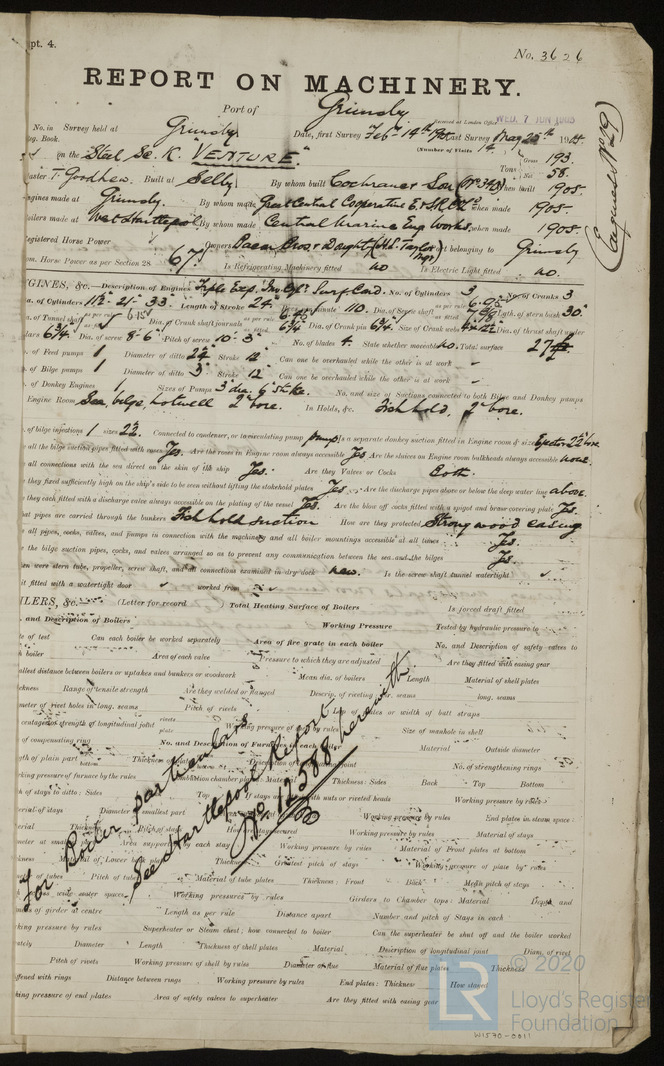 pt. 4.
No. 3626
REPORT ON MACHINERY.
Port of Grimsby
Received at London Office WED. 7 JUN 1905
No. in Survey held at Grimsby Date, first Survey Feb 14th Last Survey May 25th 1905
eg. Book. (Number of Visits 14)
on the Steel Sc. K. "VENTURE" Tons Gross 193. Net 58.
aster T. Goodhew. Built at Selby. By whom built Cochrane & Son (No 343) When built 1905.
ngines made at Grimsby. By whom made Great Central Cooperative E. & S.R. Co Ld when made 1905.
oilers made at West Hartlepool By whom made Central Marine Eng Works, when made 1905.
egistered Horse Power Owners Port belonging to Grimsby
om. Horse Power as per Section 28 67 Is Refrigerating Machinery fitted no Is Electric Light fitted no.
GINES, &c.— Description of Engines Triple Exp. Surf Cond. No. of Cylinders 3 No. of Cranks 3
a. of Cylinders 11½ - 21 - 33 Length of Stroke 24" minute 110. Dia. of Screw shaft as per rule Lgth. of stern bush 30"
a. of Tunnel shaft as per rule Dia. of Crank shaft journals as per rule as fitted 6¾ Dia. of Crank pin 6¾ Size of Crank webs Dia. of thrust shaft under
lars 6¾. Dia. of screw 8-6 Pitch of screw 10-3 No. of blades 4 State whether moveable no. Total surface 27
o. of Feed pumps 1 Diameter of ditto Stroke 12 Can one be overhauled while the other is at work -
o. of Bilge pumps 1 Diameter of ditto 3 Stroke 12 Can one be overhauled while the other is at work -
o. of Donkey Engines 1 Sizes of Pumps 3" dia. 6" stroke. No. and size of Suctions connected to both Bilge and Donkey pumps
Engine Room Sea, bilge, hotwell 2" bore. In Holds, &c. Fish hold, 2" bore.
o. of bilge injections 1 sizes Connected to condenser, or to circulating pump pump Is a separate donkey suction fitted in Engine room & size Ejector bore
e all the bilge suction pipes fitted with roses Yes. Are the roses in Engine room always accessible Yes Are the sluices on Engine room bulkheads always accessible none.
e all connections with the sea direct on the skin of the ship Yes. Are they Valves or Cocks Both.
e they fixed sufficiently high on the ship's side to be seen without lifting the stokehold plates Yes. Are the discharge pipes above or below the deep water line above.
e they each fitted with a discharge valve always accessible on the plating of the vessel Yes. Are the blow off cocks fitted with a spigot and brass covering plate Yes.
hat pipes are carried through the bunkers Fish hold suction How are they protected Strong wood casing
e all pipes, cocks, valves, and pumps in connection with the machinery and all boiler mountings accessible at all times Yes.
e the bilge suction pipes, cocks, and valves arranged so as to prevent any communication between the sea and the bilges Yes.
hen were stern tube, propeller, screw shaft, and all connections examined in dry dock new. Is the screw shaft tunnel watertight
it fitted with a watertight door worked from
ILERS, &c.— (Letter for record ) Total Heating Surface of Boilers Is forced draft fitted
. and Description of Boilers Working Pressure Tested by hydraulic pressure to
te of test Can each boiler be worked separately Area of fire grate in each boiler No. and Description of safety valves to
h boiler Area of each valve Pressure to which they are adjusted Are they fitted with easing gear
allest distance between boilers or uptakes and bunkers or woodwork Mean dia. of boilers Length Material of shell plates
ckness Range of tensile strength Are they welded or flanged Descrip. of riveting: cir. seams long. seams
meter of rivet holes in long. seams Pitch of rivets Lap of plates or width of butt straps
centages of strength of longitudinal joint rivets plate Working pressure of shell by rules Size of manhole in shell
of compensating ring No. and Description of Furnaces in each boiler Material Outside diameter
gth of plain part bottom Thickness of Description of longitudinal joint No. of strengthening rings
rking pressure of furnace by the rules Combustion chamber plates: Material Thickness: Sides Back Top Bottom
h of stays to ditto: Sides Top If stays are fitted with nuts or riveted heads Working pressure by rules
erial of stays Diameter at smallest part Working pressure by rules End plates in steam space:
erial Thickness Pitch of stays How are stays secured Working pressure by rules Material of stays
meter at smallest Area supported by each stay Working pressure by rules Material of Front plates at bottom
kness Material of Lower back plate Thickness Greatest pitch of stays Working pressure of plate by rules
Pitch of tubes Material of tube plates Thickness: Front Back Mean pitch of stays
wide water spaces Working pressures by rules Girders to Chamber tops: Material Depth and
ss of girder at centre Length as per rule Distance apart Number and pitch of Stays in each
king pressure by rules Superheater or Steam chest; how connected to boiler Can the superheater be shut off and the boiler worked
ately Diameter Length Thickness of shell plates Material Description of longitudinal joint Diam. of rivet
Pitch of rivets Working pressure of shell by rules Diameter of flue Material of flue plates Thickness
ffened with rings Distance between rings Working pressure by rules End plates: Thickness How stayed
king pressure of end plates Area of safety valves to superheater Are they fitted with easing gear
For Boiler particulars
See Hartlepool Report
No. 12588 herewith
LR
© 2020
Lloyd's Register
Foundation
W1570-0011